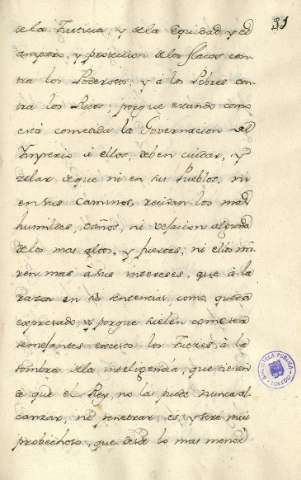 31
de la Justicia, y de la Equidad, y el
amparo, y proteccion de los flacos con
tra los Poderosos, y a los Pobres con
tra los Ricos; porque estando como
está cometida la Governacion del
Imperio á ellos, deben cuidar, y
zelar de que ni en sus Pueblos, ni
en sus Caminos, reciban los mas
humildes, daños, ni vejacion alguna
de los mas altos, y fuertes, ni ellos mi
ren mas á sus intereses, que á la
razon en sus sentencias, como queda
expresado, y porque suelen cometer
semejantes excesos los Jueces, á la
sombra de la inteligencia, que tienen
de que el Rey, no las puede nunca al
canzar, ni penetrar, es, y sera mui
probechoso, que desde lo mas menor
BIBLIOTECA PUBLICA
TOLEDO